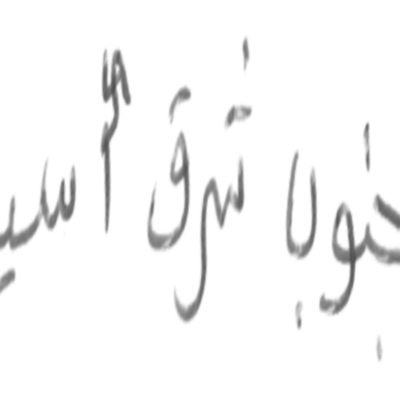 جنوب شرق أسيا